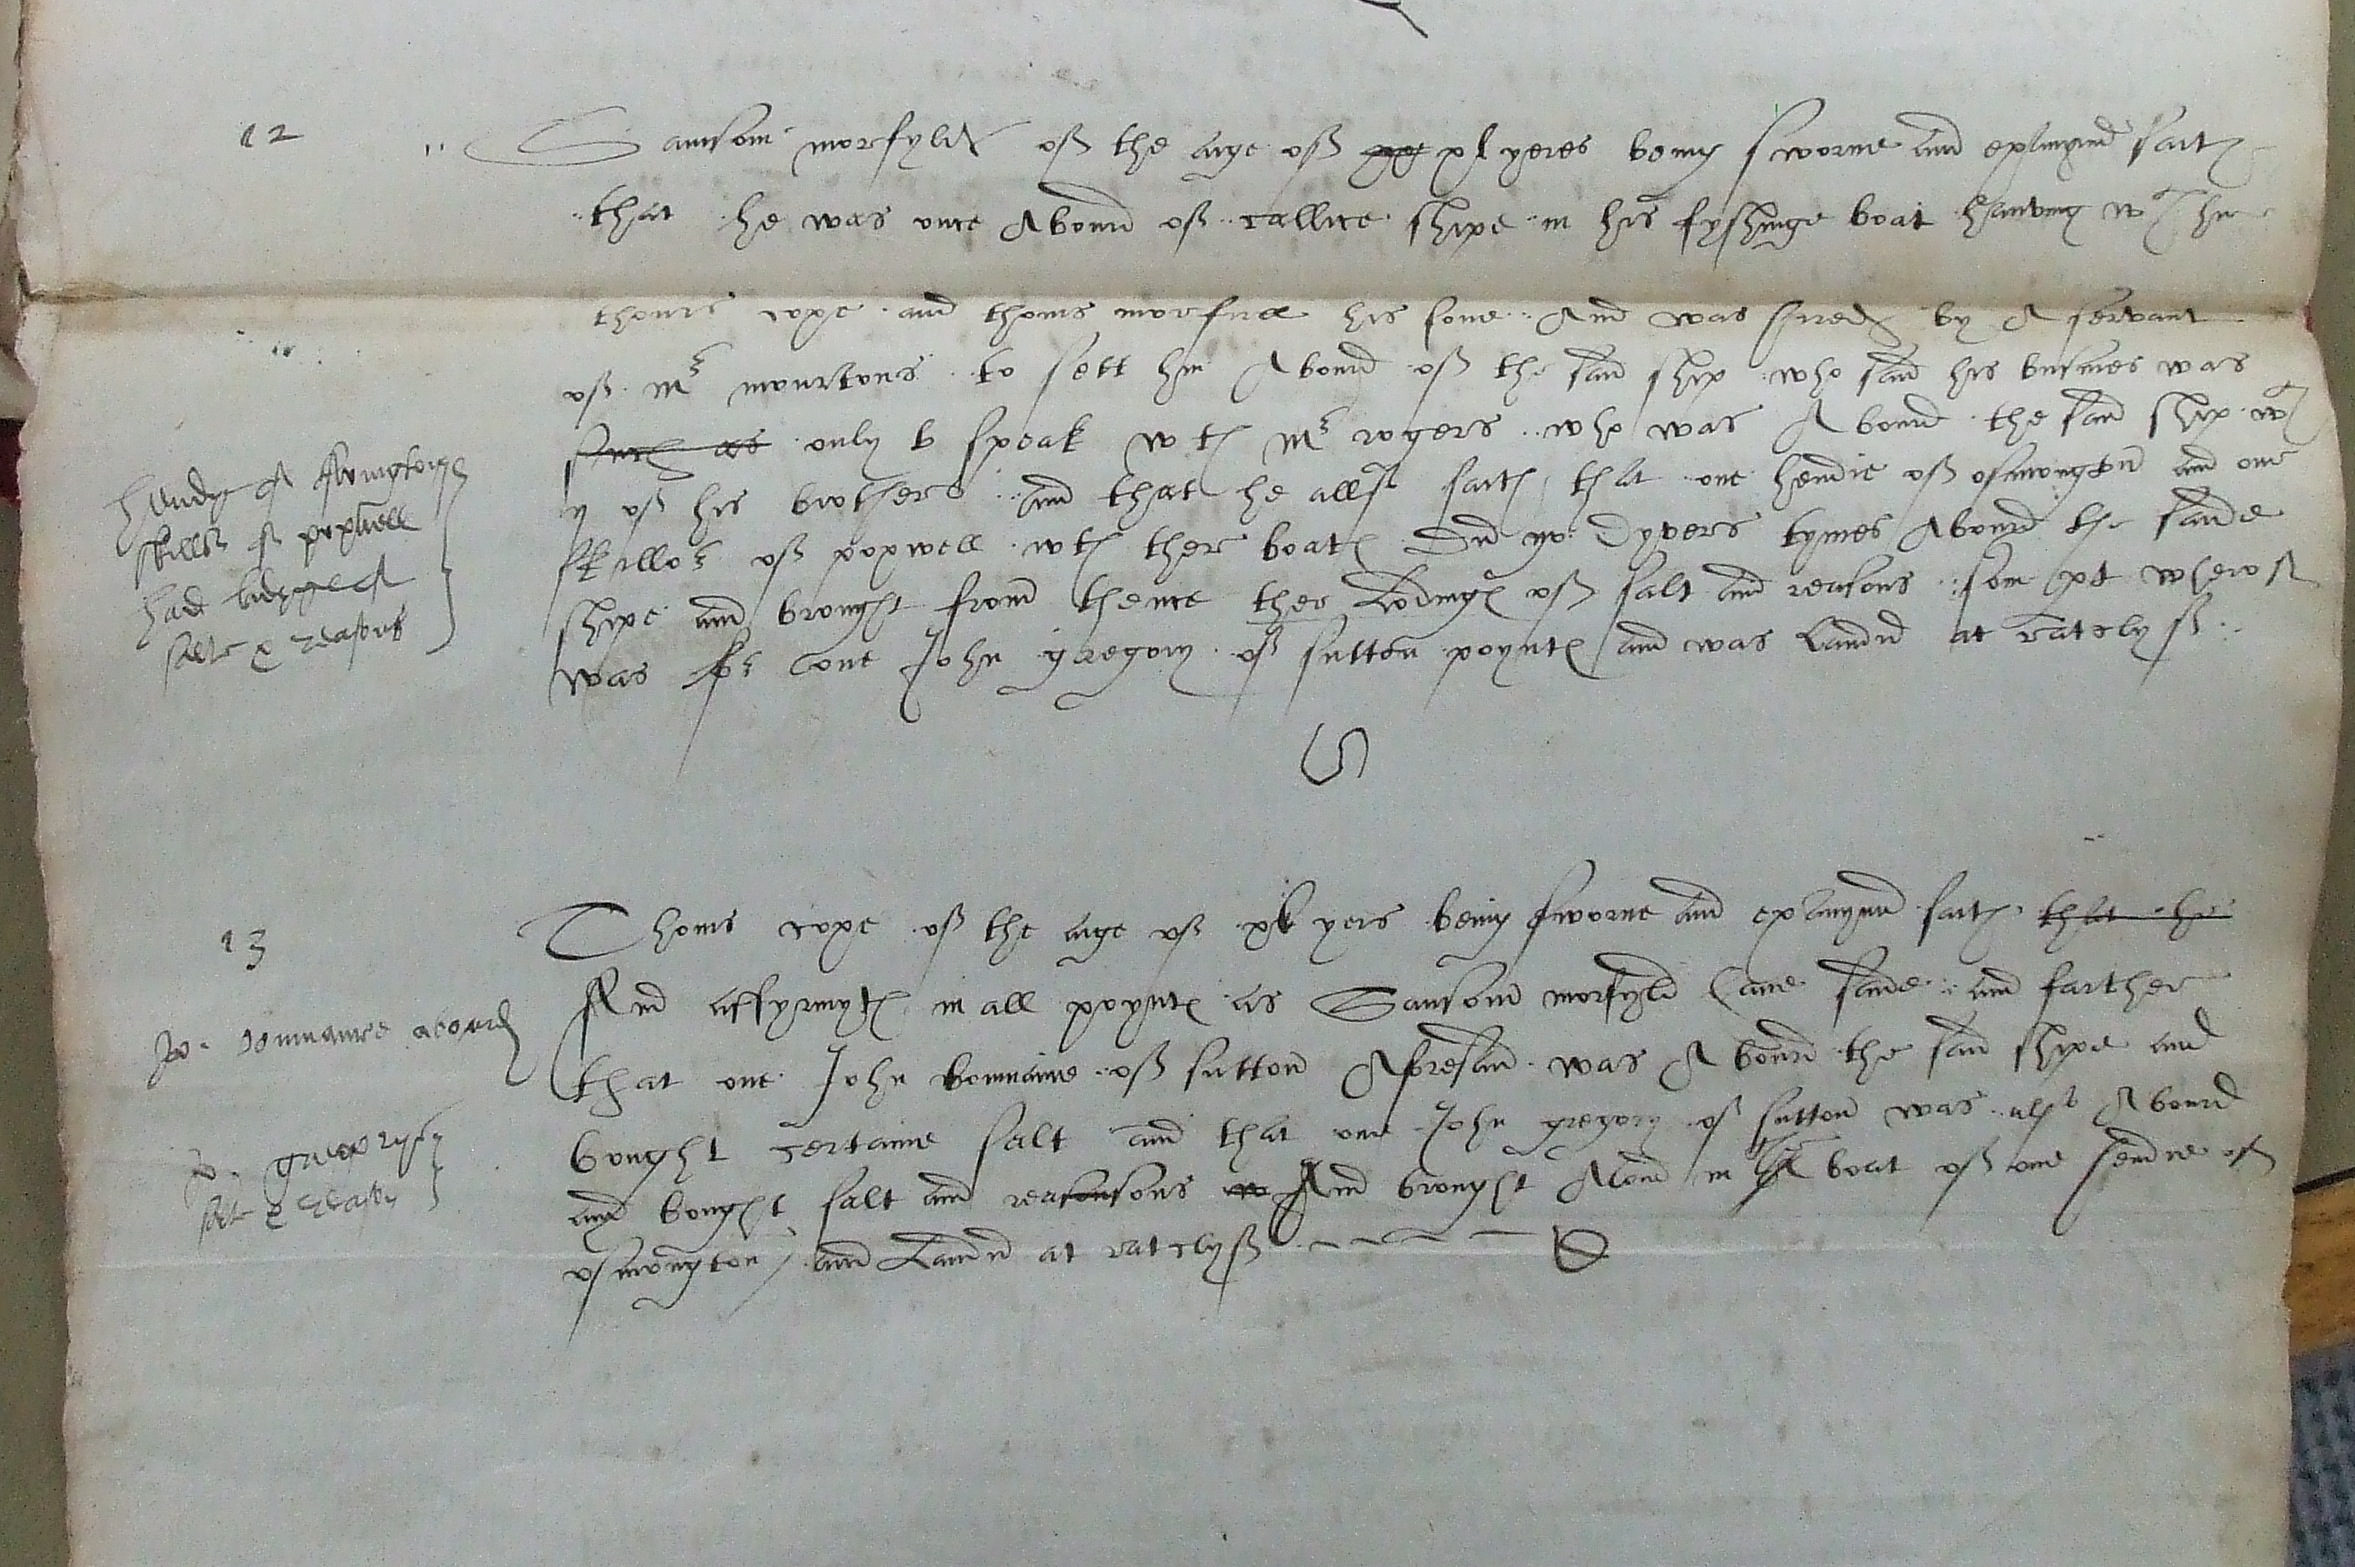 12
Samsom morfyld off the aige off xl yeres being sworne and exampned saith
that he was once Abourd off callice shipe in his fyshinge boat having wth him
thoms cope and thoms morfild his sone And was hired by A servant
off mr mourtons to sett him Abourd off the said ship who said his busines was
such as only to speak wth mr rogers who was A bourd the said ship wth
ij off his brothers and that he allso saith that one hendie off osmington and one
skillor off poxwell wth ther boate Did go Dyvers tymes Abourd the saide
shipe and brought from thence ther Lodinge off salt and reasons som pt wheroff
was for one John gregory off sutton poynte and was Landid at ratclyff
hendy of osmington
skillor of poxwell
had ladyge of
salte & reasons
13
Thoms cope off the aige off xl yers being sworne and exampned saith that he
And affyrmyth in all poynte as Samsom morfyld have saide and farther
that one John bonnaine off sutton Aforesaid was A bourd the said shipe and
bought certaine salt and that one John gregory off sutton was also Abourd
and bought salt and reasonsons And brought A lond in the boat off one hendie off
osmington and Landid at ratclyff
Jo. bonnaine abourd
Jo. gregory
salt & reasons